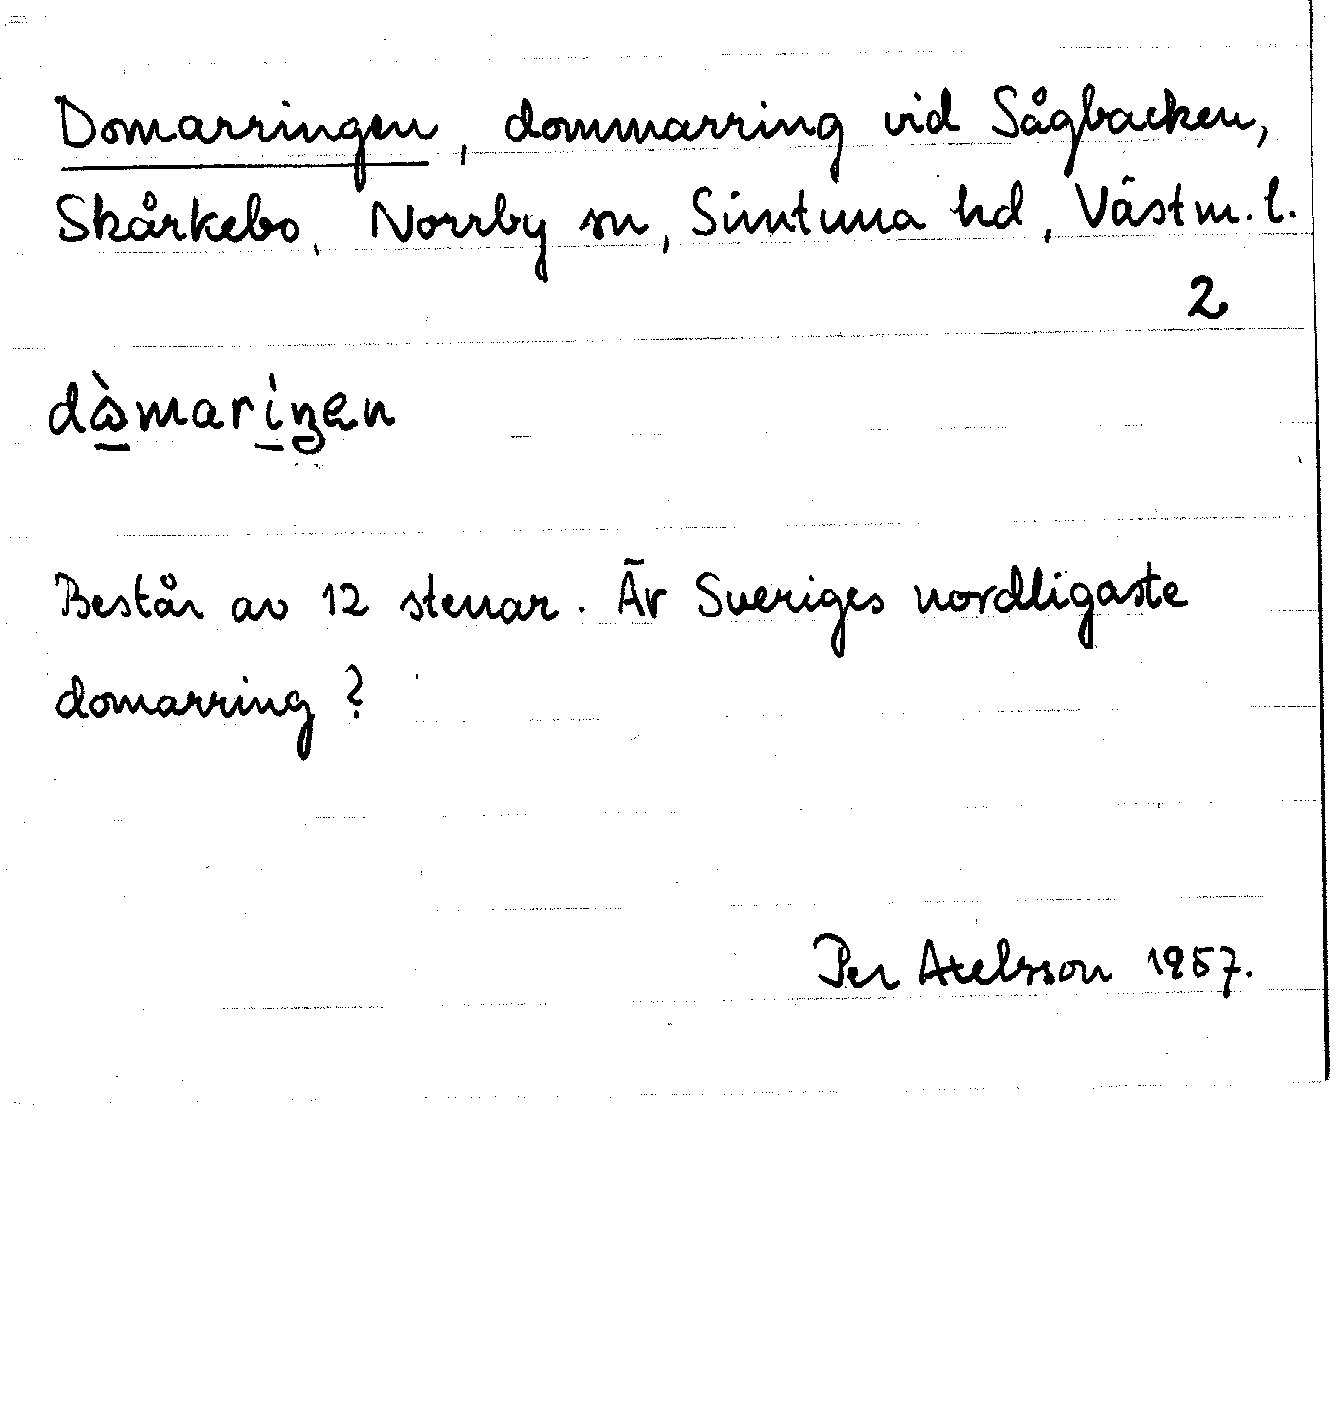 Domarringen, dommarring vid Sågbacken,
Skårkebo, Norrby sn, Simtuna hd, Västm. l.
2
Består av 12 stenar. Är Sveriges nordligaste
domarring?
Per Axelsson 1957.